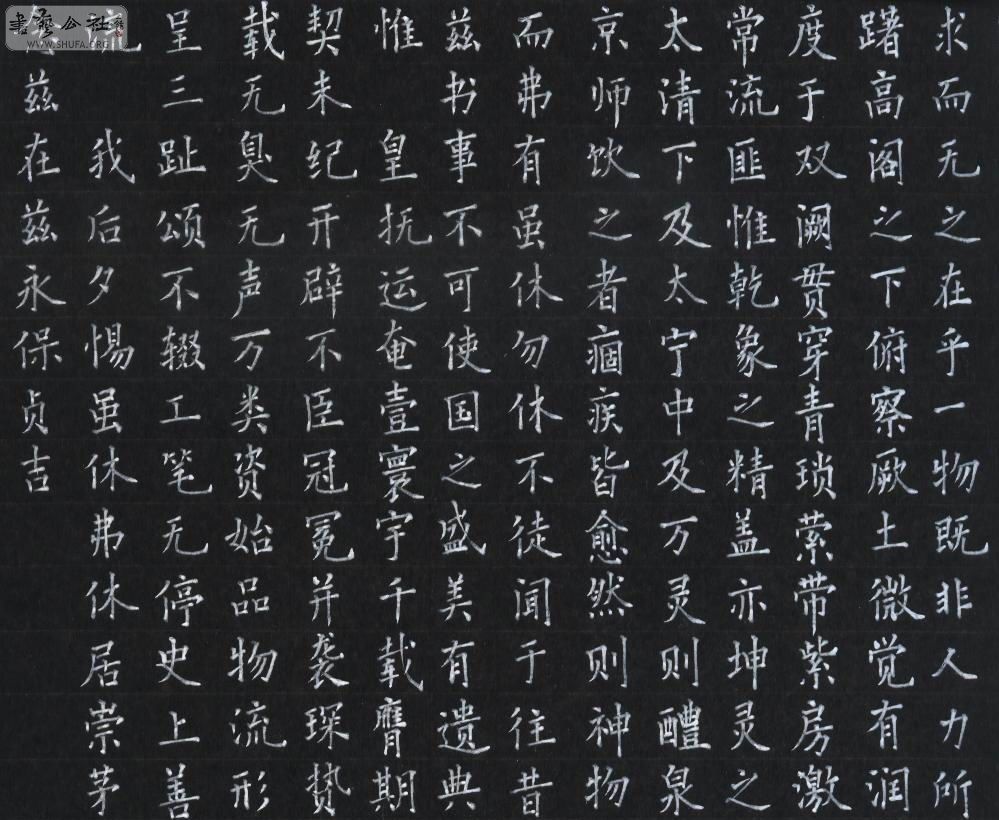 求而无之在乎一物既非人力所
躇高阁之下俯察厥土微觉有润
度于双阙贯穿青琐萦带紫房激
常流匪惟乾象之精盖亦坤灵之
太清下及太宁中及万灵则醴泉
京师饮之者痼疾皆愈然则神物
而弗有虽休勿休不徒闻于往昔
兹书事不可使国之盛美有遗典
惟 皇抚运奄壹寰宇千载膺期
契未纪开辟不臣冠冕并袭琛贽
载无臭无声万类资始品物流形
呈三趾颂不辍工笔无停史上善
我后夕惕虽休弗休居崇茅
兹在兹永保贞吉
書藝公社
WWW.SHUFA.ORG